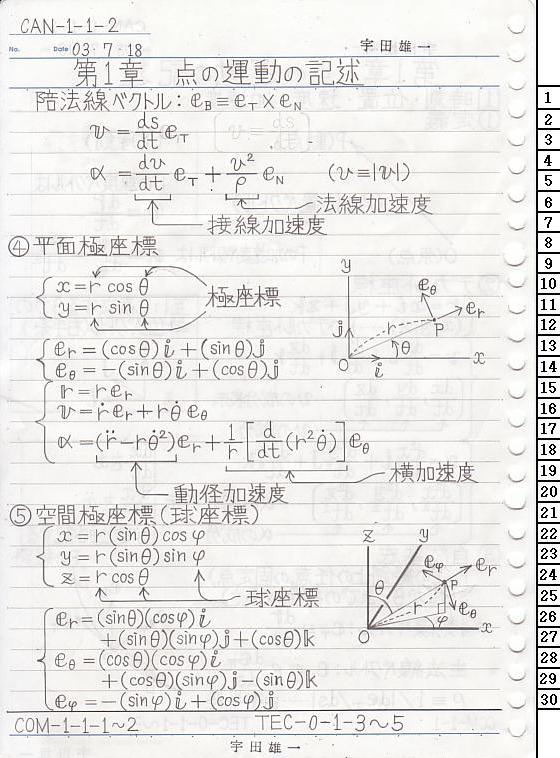 CAN-1-1-2
No. Date 03・7・18 宇田雄一
第1章 点の運動の記述
陪法線ベクトル：e_B≡e_T×e_N
v＝ds/dt e_T
α＝dv/dt e_T＋v²/ρ e_N （v≡|v|）
法線加速度
接線加速度
④平面極座標
x＝r cosθ
y＝r sinθ
極座標
y e_θ e_r P r j θ O i x
e_r＝(cosθ)i＋(sinθ)j
e_θ＝−(sinθ)i＋(cosθ)j
r＝r e_r
v＝ṙe_r＋rθ̇e_θ
α＝(r̈−rθ̇²)e_r＋1/r[d/dt(r²θ̇)]e_θ
横加速度
動径加速度
⑤空間極座標(球座標)
x＝r(sinθ)cosφ
y＝r(sinθ)sinφ
z＝r cosθ
球座標
z y e_φ e_r P θ r e_θ φ O x
e_r＝(sinθ)(cosφ)i
＋(sinθ)(sinφ)j＋(cosθ)k
e_θ＝(cosθ)(cosφ)i
＋(cosθ)(sinφ)j−(sinθ)k
e_φ＝−(sinφ)i＋(cosφ)j
COM-1-1-1〜2 TEC-0-1-3〜5
宇田雄一
1
2
3
4
5
6
7
8
9
10
11
12
13
14
15
16
17
18
19
20
21
22
23
24
25
26
27
28
29
30